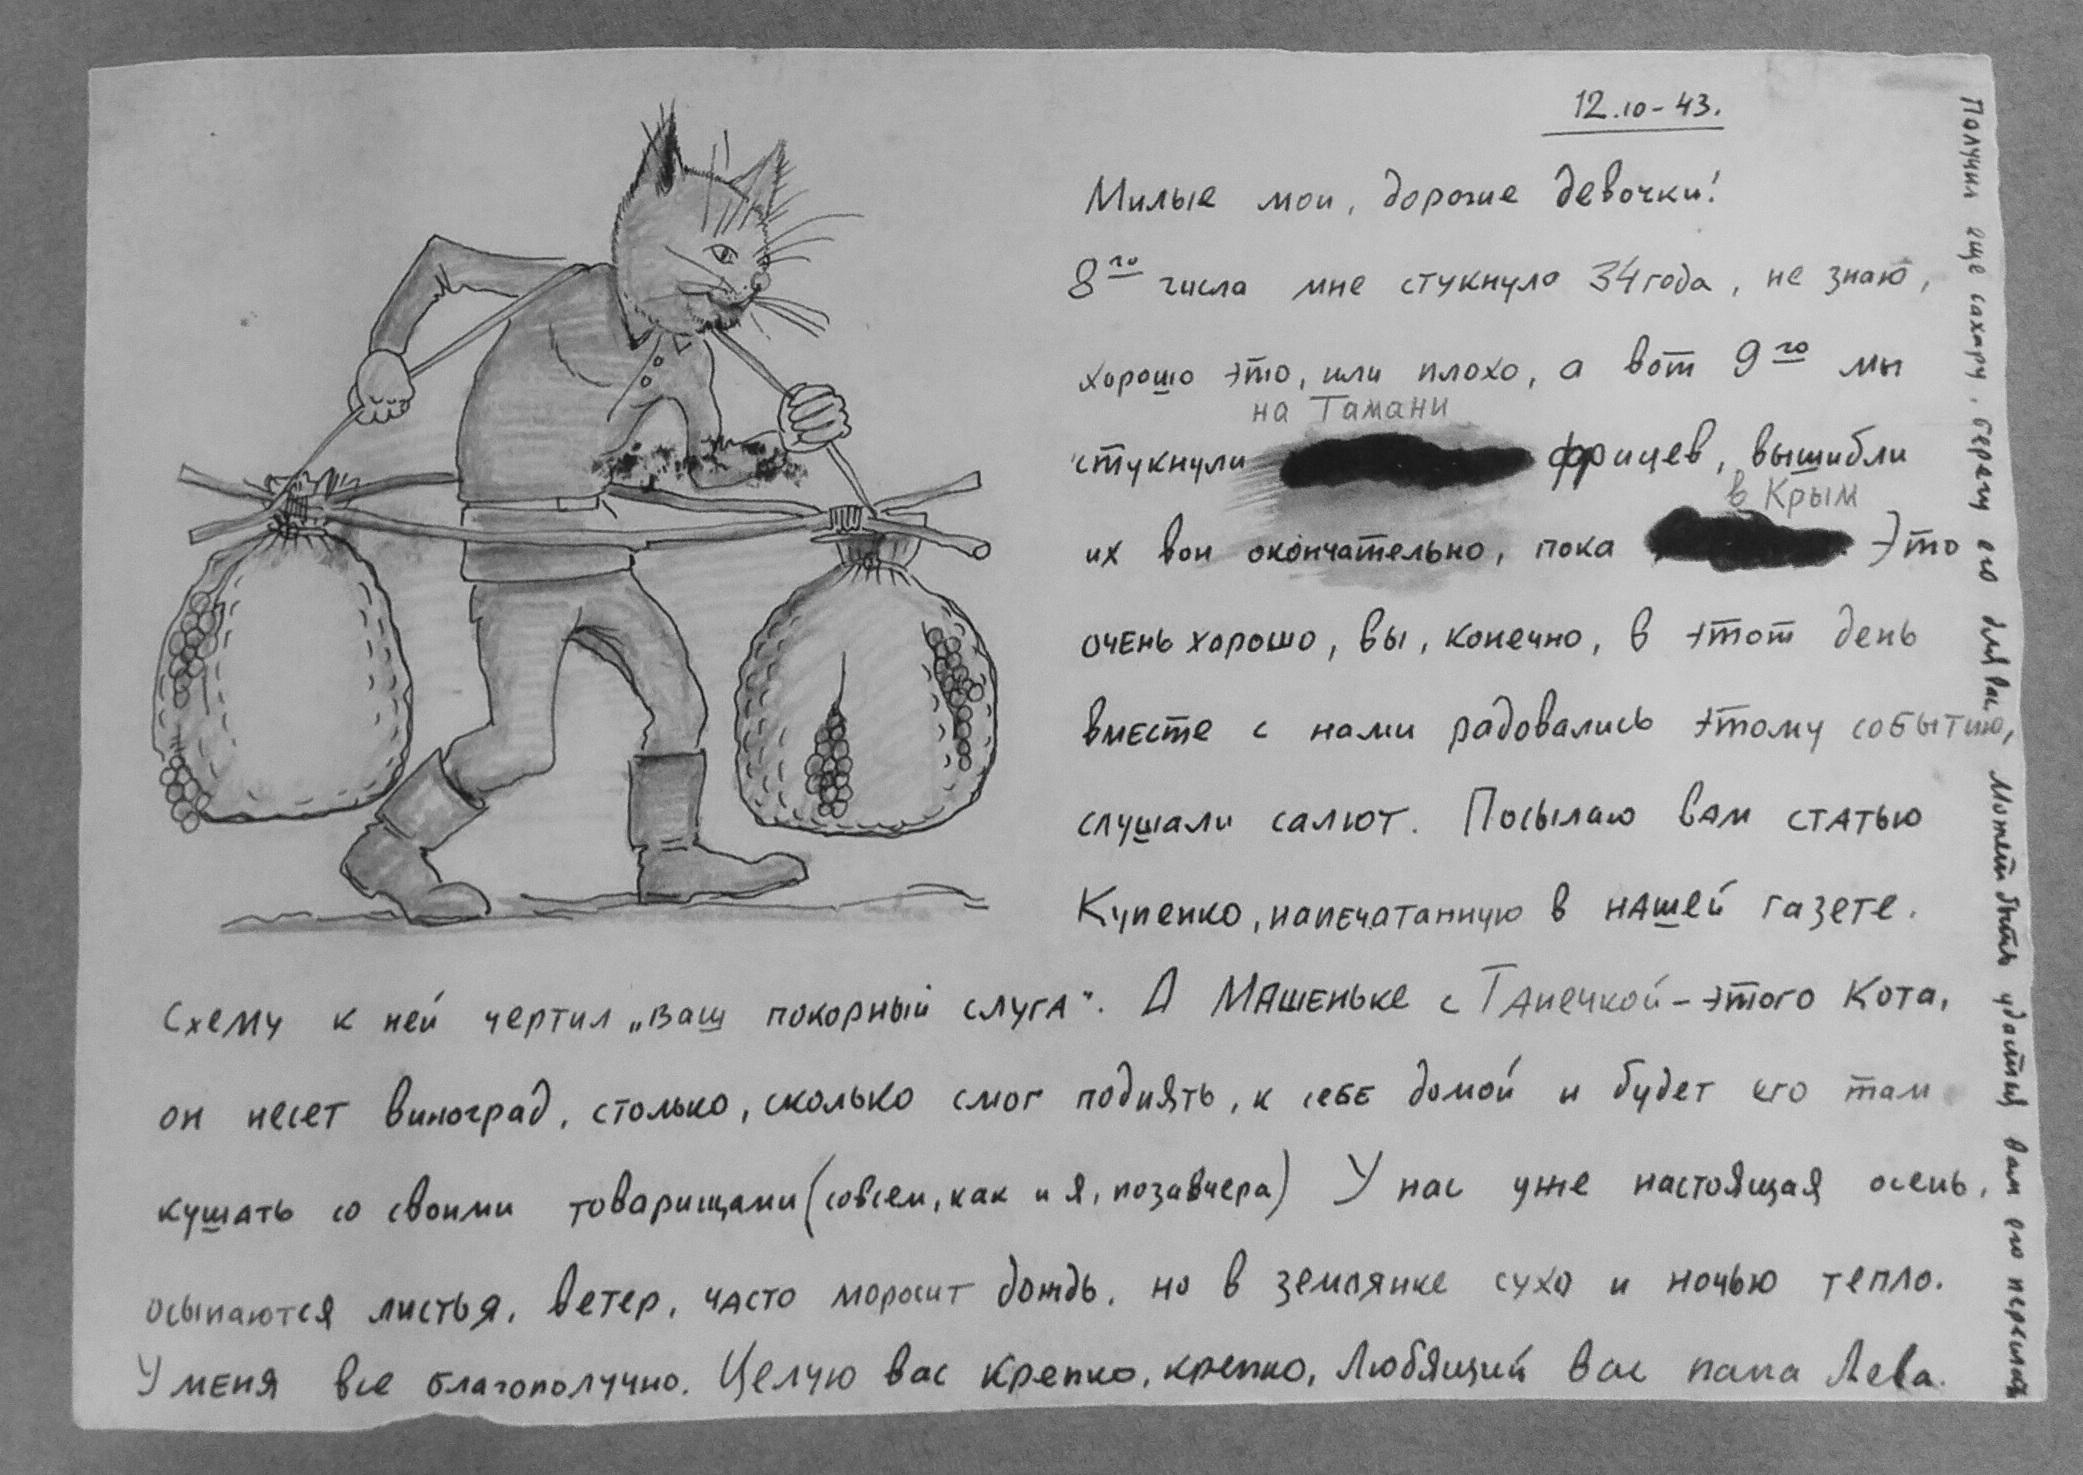 12.10-43.
Милые мои, дорогие девочки!
8го числа мне стукнуло 34 года, не знаю,
хорошо это, или плохо, а вот 9го мы
на Тамани
стукнули фрицев, вышибли
в Крым
их вон окончательно, пока Это
очень хорошо, вы, конечно, в этот день
вместе с нами радовались этому событию,
слушали салют. Посылаю вам статью
Купенко, напечатанную в нашей газете.
Схему к ней чертил „ваш покорный слуга". А Машеньке с Танечкой - этого Кота,
он несет виноград, столько, сколько смог поднять, к себе домой и будет его там
кушать со своими товарищами (совсем, как и я, позавчера) У нас уже настоящая осень,
осыпаются листья, ветер, часто моросит дождь, но в землянке сухо и ночью тепло.
У меня все благополучно. Целую вас крепко, крепко, Любящий вас папа Лева.
Получил еще сахару, берегу его для вас, может быть удастся вам его переслать